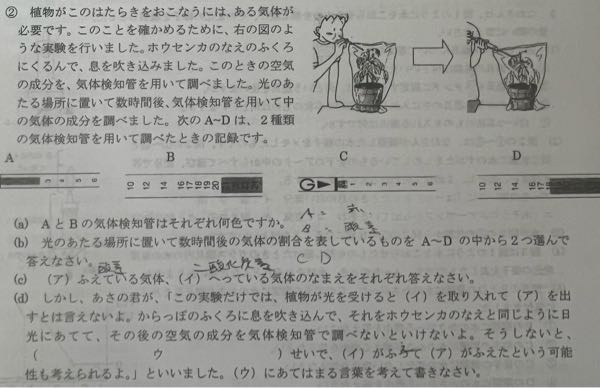 ② 植物がこのはたらきをおこなうには、ある気体が
必要です。このことを確かめるために、右の図のよ
うな実験を行いました。ホウセンカのなえのふくろ
にくるんで、息を吹き込みました。このときの空気
の成分を、気体検知管を用いて調べました。光のあ
たる場所に置いて数時間後、気体検知管を用いて中
の気体の成分を調べました。次のA~Dは、2種類
の気体検知管を用いて調べたときの記録です。
A B C D
3 4 5 6
10 12 14 16 17 18 19 20
1 2 3 4 5 6
10 12 14 16 17 18
(a) AとBの気体検知管はそれぞれ何色ですか。
A=
B= 酸素
(b) 光のあたる場所に置いて数時間後の気体の割合を表しているものをA~Dの中から2つ選んで
答えなさい。
C D
酸素 二酸化炭素
(c) (ア)ふえている気体、(イ)へっている気体のなまえをそれぞれ答えなさい。
(d) しかし、あさの君が、「この実験だけでは、植物が光を受けると(イ)を取り入れて(ア)を出
すとは言えないよ。からっぽのふくろに息を吹き込んで、それをホウセンカのなえと同じように日
光にあてて、その後の空気の成分を気体検知管で調べないといけないよ。そうしないと、
( ウ )せいで、(イ)がふえて(ア)がふえたという可能
性も考えられるよ。」といいました。(ウ)にあてはまる言葉を考えて書きなさい。